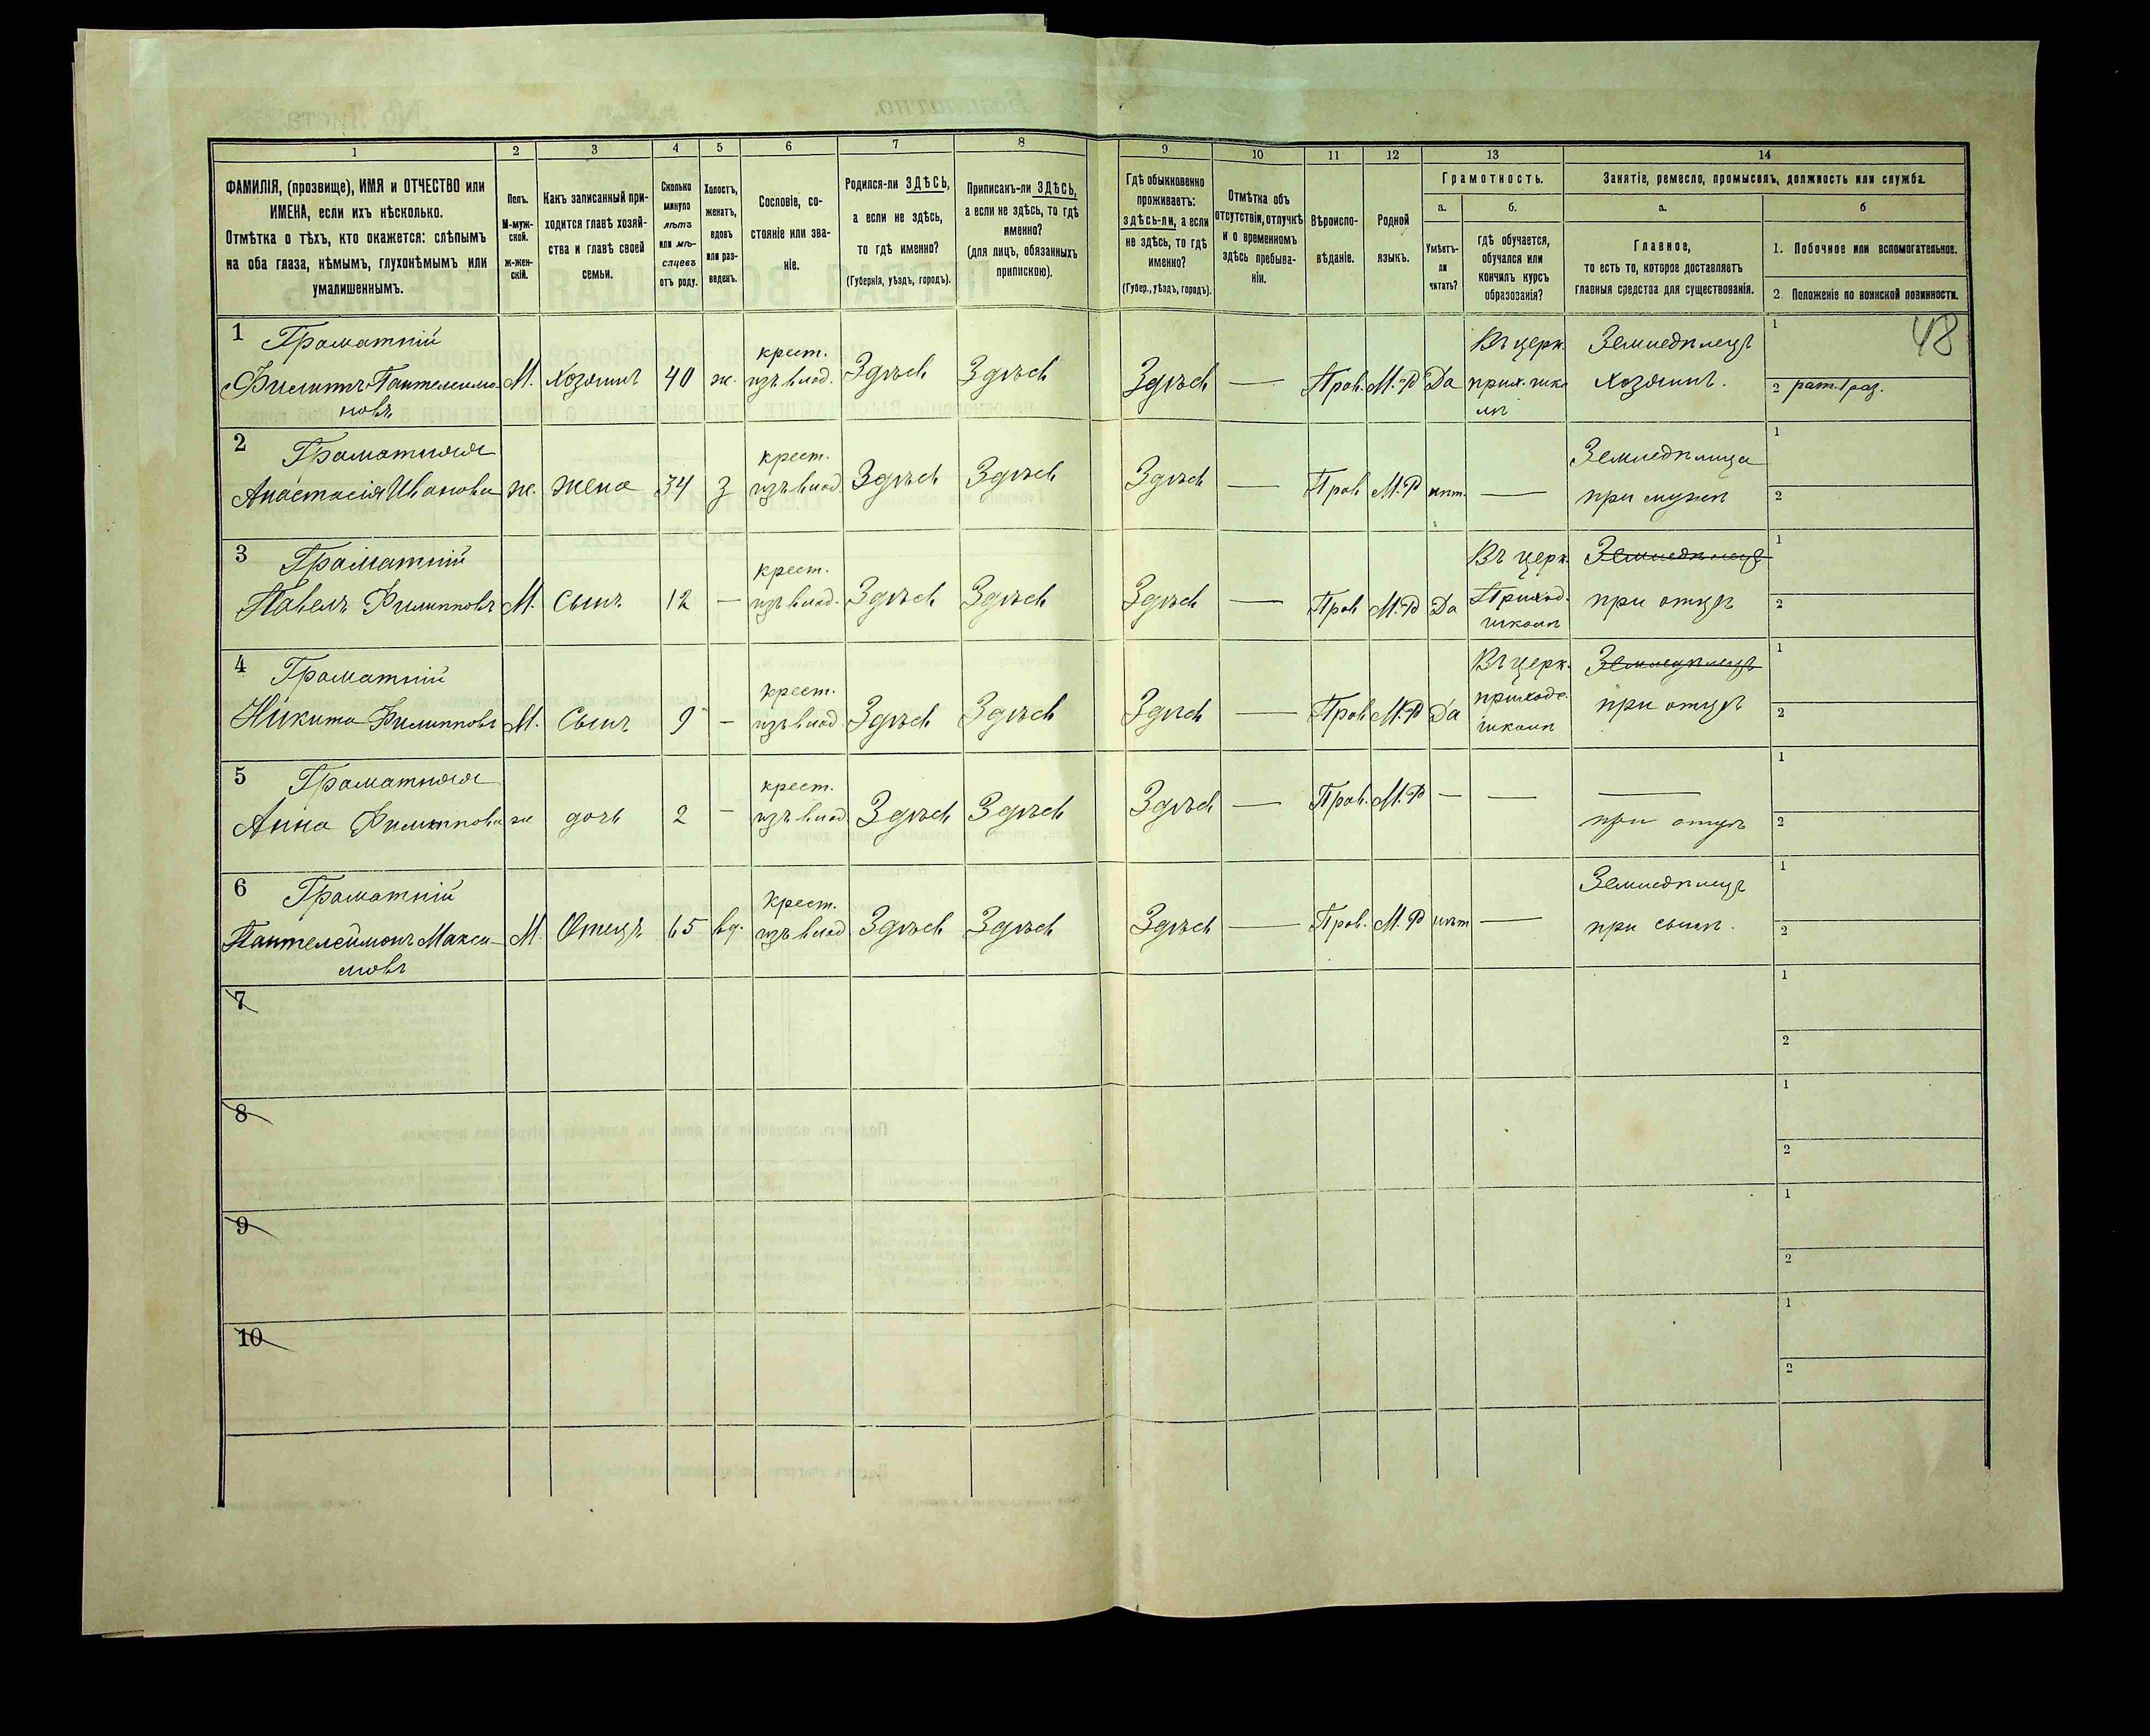 1 2 3 4 5 6 7 8 9 10 11 12 13 14
ФАМИЛІЯ, (прозвище), ИМЯ и ОТЧЕСТВО или
ИМЕНА, если ихъ нѣсколько.
Отмѣтка о тѣхъ, кто окажется: слѣпымъ
на оба глаза, нѣмымъ, глухонѣмымъ или
умалишеннымъ.
Полъ.
М-муж-
ской.
ж-жен-
скій.
Какъ записанный при-
ходится главѣ хозяй-
ства и главѣ своей
семьи.
Сколько
минуло
лѣтъ
или мѣ-
сяцевъ
отъ роду.
Холостъ,
женатъ,
вдовъ
или раз-
веденъ.
Сословіе, со-
стояніе или зва-
ніе.
Родился-ли ЗДѢСЬ,
а если не здѣсь,
то гдѣ именно?
(Губернія, уѣздъ, городъ).
Приписанъ-ли ЗДѢСЬ,
а если не здѣсь, то гдѣ
именно?
(для лицъ, обязанныхъ
припискою).
Гдѣ обыкновенно
проживаетъ:
здѣсь-ли, а если
не здѣсь, то гдѣ
именно?
(Губер., уѣздъ, городъ).
Отмѣтка объ
отсутствіи, отлучкѣ
и о временномъ
здѣсь пребыва-
ніи.
Вѣроиспо-
вѣданіе.
Родной
языкъ.
Грамотность.
а.
Умѣетъ-
ли
читать?
б.
гдѣ обучается,
обучался или
кончилъ курсъ
образованія?
Занятіе, ремесло, промыселъ, должность или служба.
а.
Главное,
то есть то, которое доставляетъ
главныя средства для существованія.
б
1. Побочное или вспомогательное.
2 Положеніе по воинской повинности.
48
1 Граматній крест. Въ церк. Земледѣлецъ 1
Филиппъ Пантелеимо- М. хозяинъ 40 ж. изъ влад. Здѣсь Здѣсь Здѣсь — Прав. М.Р Да прих. шко хозяинъ. 2 рат. 1 раз.
новъ лѣ
2 Граматная крест. Земледѣлица 1
Анастасія Иванова ж. жена 34 з изъ влад. Здѣсь Здѣсь Здѣсь — Прав М.Р нѣт. — при мужѣ 2
3 Граматній крест. Въ церк. Земледѣлецъ 1
Павелъ Филипповъ М. Сынъ 12 — изъ влад. Здѣсь Здѣсь Здѣсь — Прав М.Р Да Приход. при отцѣ 2
школѣ
4 Граматній крест. Въ церк. Земледѣлецъ 1
Никита Филипповъ М. Сынъ 9 — изъ влад Здѣсь Здѣсь Здѣсь — Прав М.Р Да приход. при отцѣ 2
школѣ
5 Граматная крест. — 1
Анна Филиппова ж дочь 2 — изъ влад Здѣсь Здѣсь Здѣсь — Прав. М.Р — — при отцѣ 2
6 Граматній Крест. Земледѣлецъ 1
Пантелеймонъ Макси- М. Отецъ 65 вд. изъ влад Здѣсь Здѣсь Здѣсь — Прав. М.Р нѣт — при сынѣ. 2
мовъ
7 1
2
8 1
2
9 1
2
10 1
2